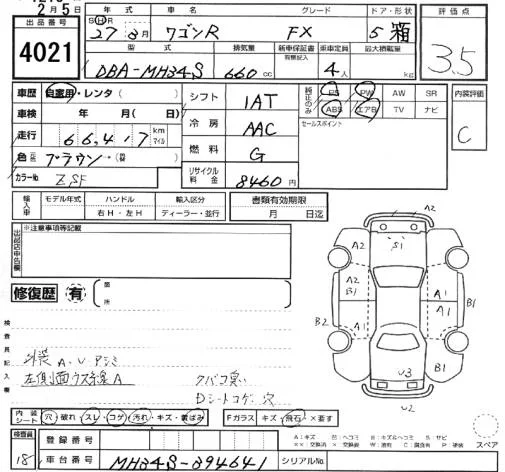 2月5日
出品番号
4021
年式 車名 グレード ドア・形状 評価点
S H R 27年8月 ワゴンR FX 5 箱
3.5
型式 排気量 新車保証書 有無記入 乗車定員 最大積載量
DBA-MH34S 660cc 4人 kg
車歴 自家用・レンタ ( )
シフト 1AT
純正のみ PS PW AW SR
ABS エアB TV ナビ
内装評価
C
車検 年 月( 日)
冷房 AAC
セールスポイント
走行 66,417 km マイル
燃料 G
色 元色 ブラウン→(替 )
リサイクル料金 8460円
カラーNo. ZSF
輸入車 モデル年式 ハンドル 輸入区分 書類有効期限
右H・左H ディーラー・並行 月 日迄
出品店申告欄 ※注意事項等記載
修復歴 有 箇所
検査員記入欄
外装 A.U.Pシミ
左側面ウス線A
タバコ臭い
Dシートコゲ穴
内装シート 穴・破れ・スレ・コゲ・汚れ・キズ・黄ばみ
Fガラス キズ・飛石・×要す
検査員 18
登録番号
車台番号 MH34S-394641 シリアルNo.
A2 S1 A2
A2 B1 A1 B1
B2 A1 A1 B1
U3
U2
A:キズ U:ヘコミ B:キズ&ヘコミ S:サビ
××:交換済 ×:交換要 W:波有 C:腐食有 P:塗装
スペア